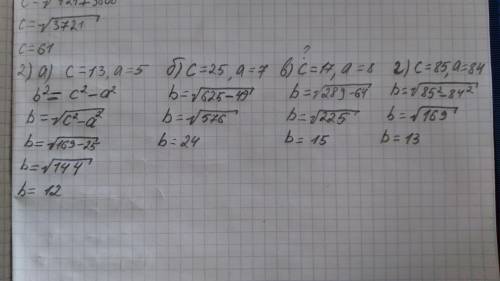 c=√3721
c=61
2) а) c=13, a=5
b²=c²-a²
b=√c²-a²
b=√169-25
b=√144
b= 12
б) c=25, a=7
b=√625-49
b=√576
b= 24
?
в) c=17, a=8
b=√289-64
b=√225
b= 15
г) c=85, a=84
b=√85²-84²
b=√169
b= 13